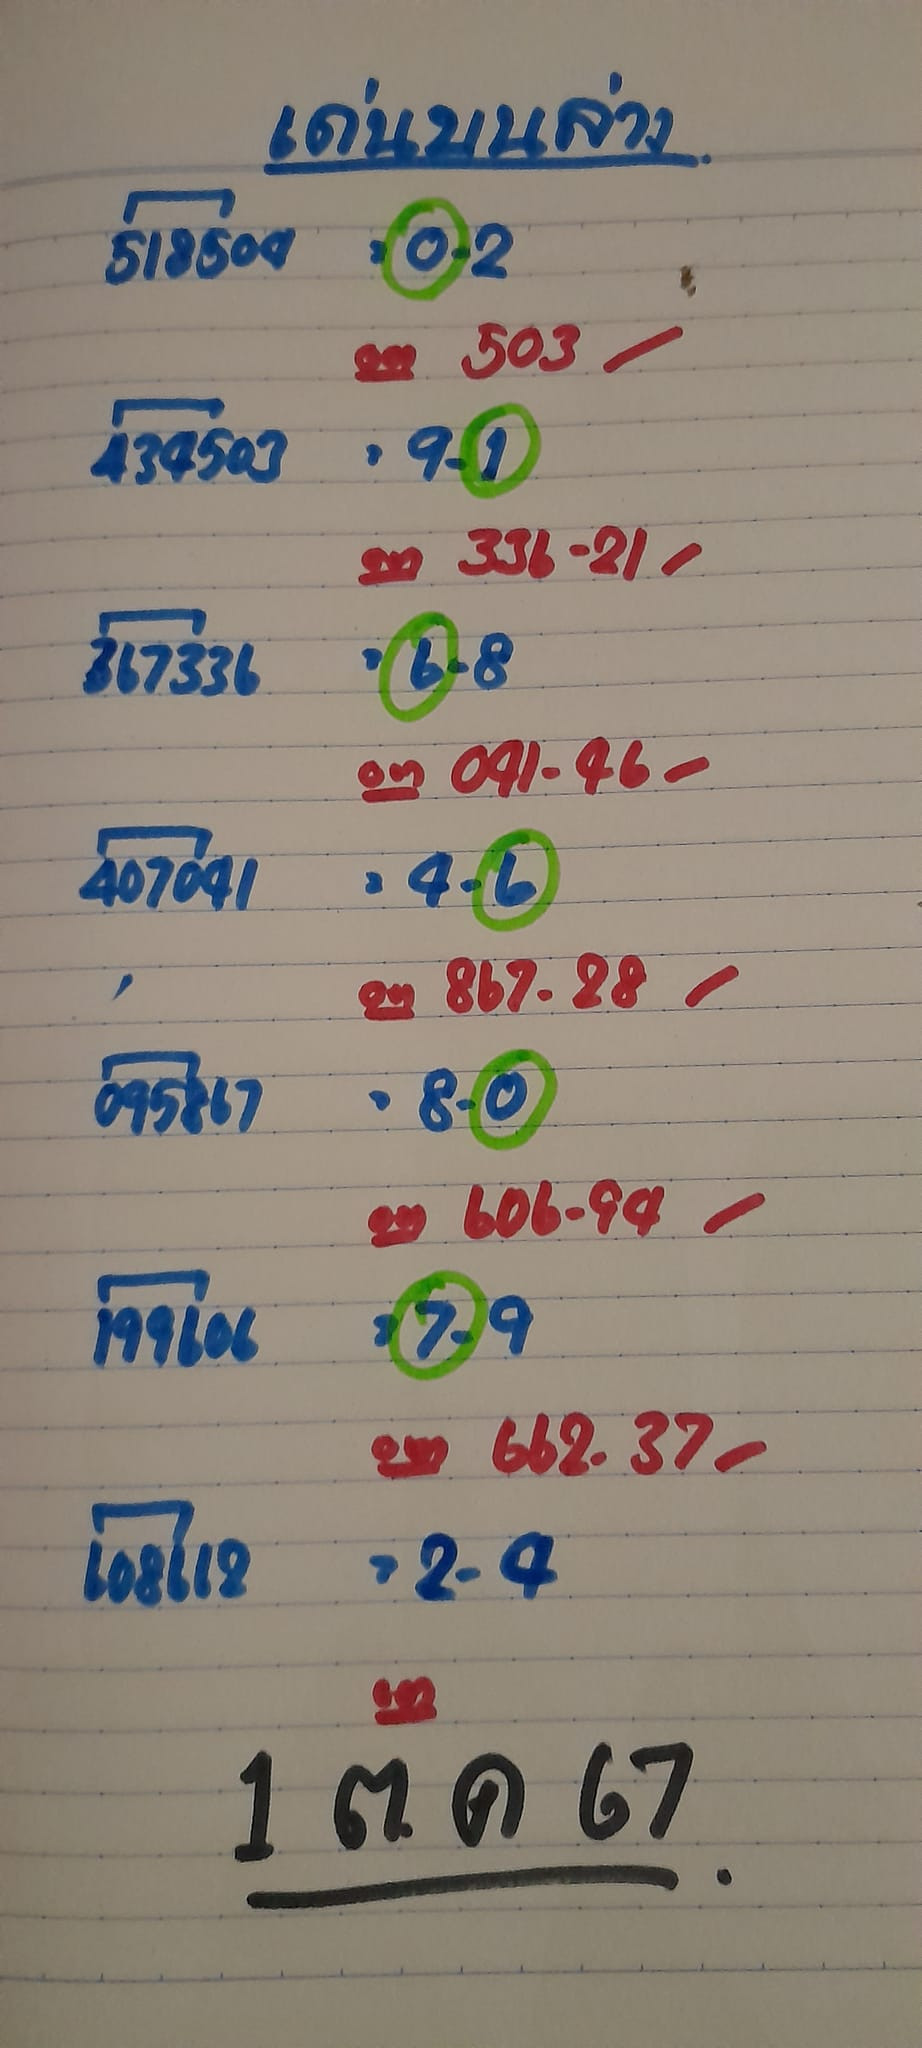 เด่นบนล่าง
518504 = 0-2
ออก 503
434503 = 9-1
ออก 336-21
367336 = 6-8
ออก 041-46
407041 = 4-6
ออก 867-28
095867 = 8-0
ออก 606-94
199606 = 7-9
ออก 662-37
608662 = 2-4
ออก
1 ต ค 67